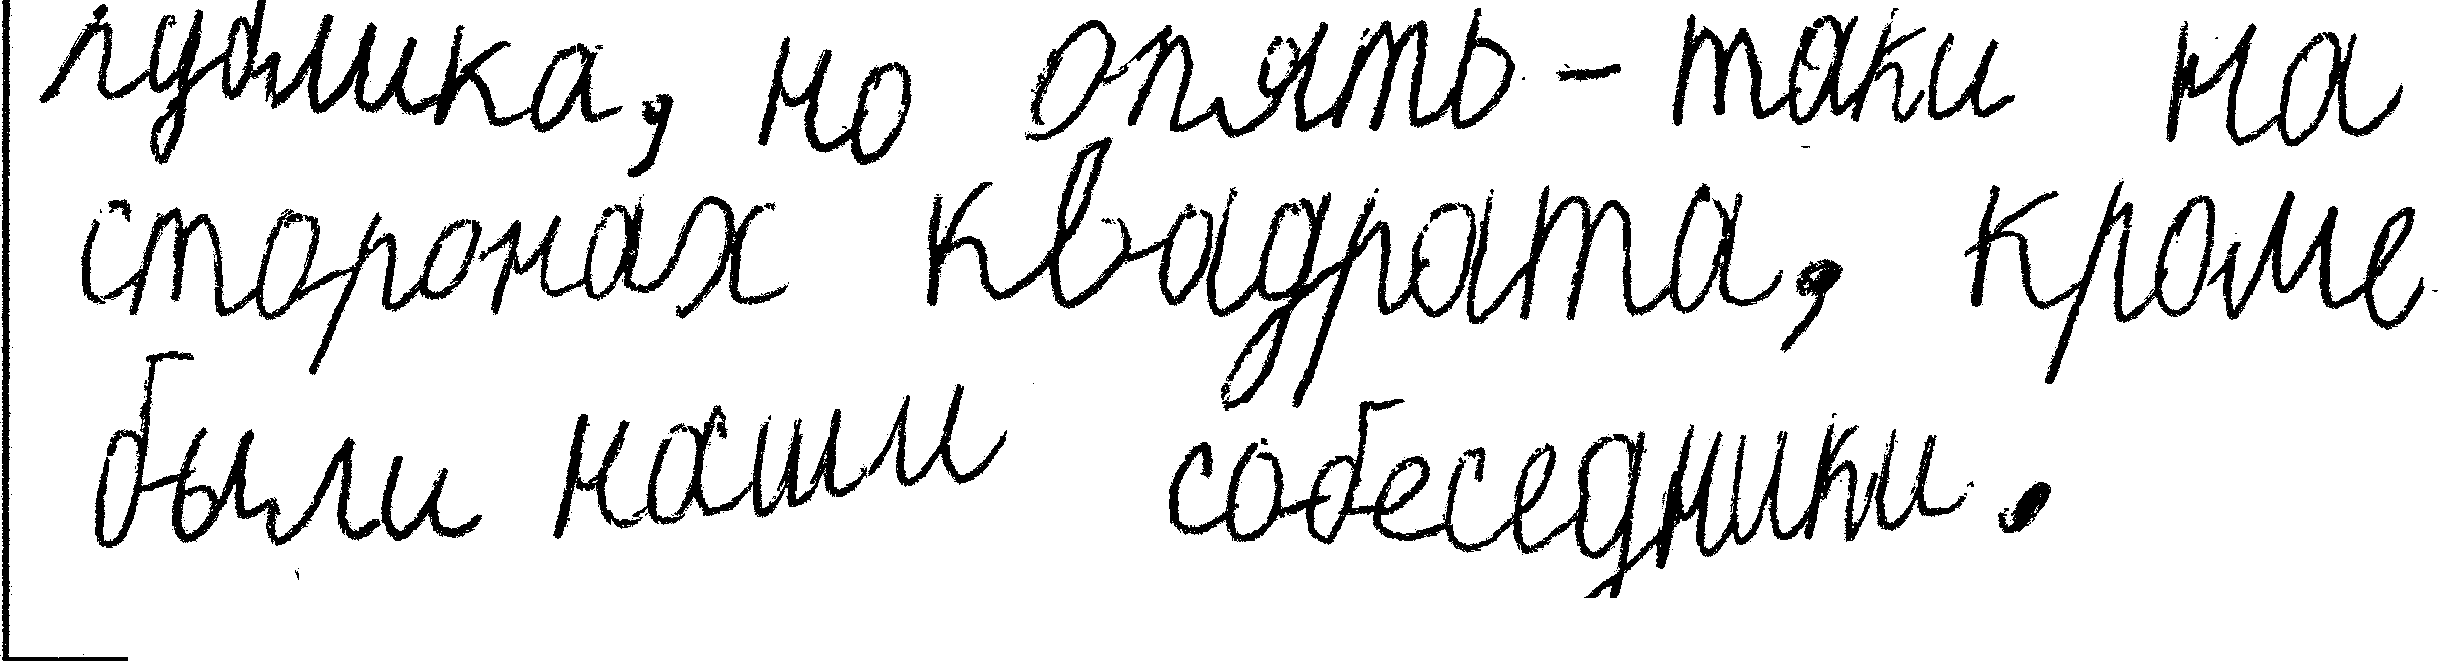 но опять-таки на
сторонах квадрата, кроме
были наши собеседники.